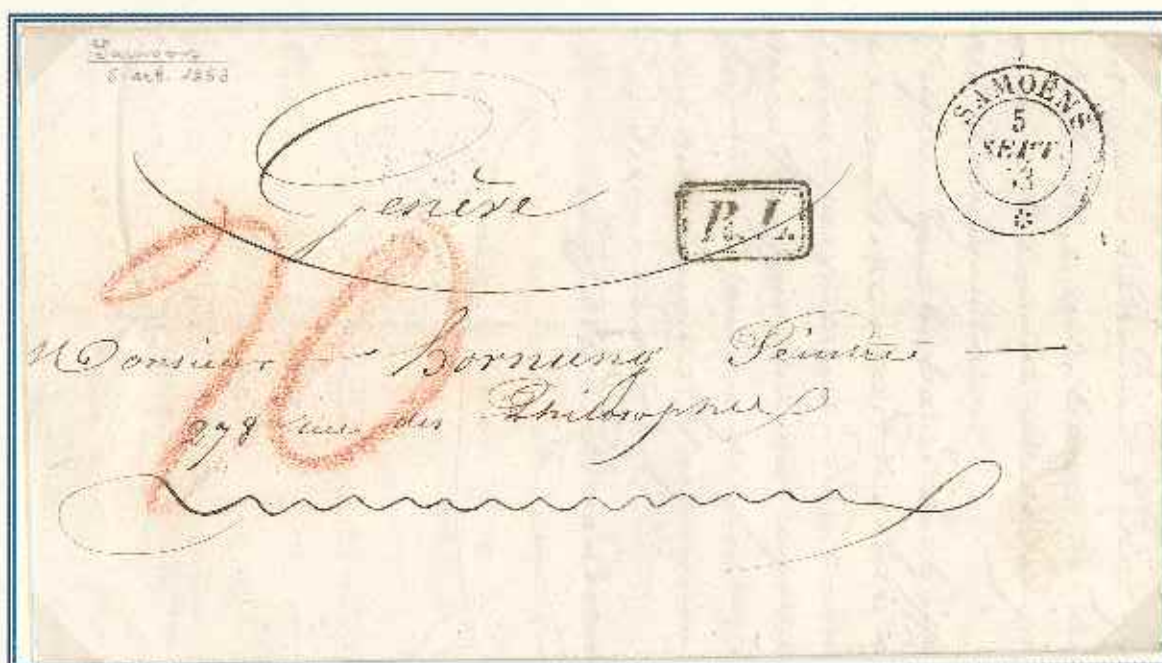 5 1853
SAMOËNS
5
SEPT.
53
Genève
P.L.
70
Monsieur Hornung Peintre
278 rue des Philosophes